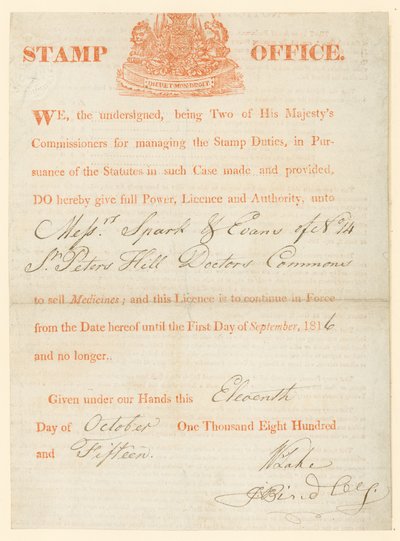 STAMP OFFICE.
DIEU ET MON DROIT
WE, the undersigned, being Two of His Majesty's
Commissioners for managing the Stamp Duties, in Pur-
suance of the Statutes in such Case made and provided,
DO hereby give full Power, Licence and Authority, unto
Messrs Spark & Evans of No 14
St. Peters Hill Doctors Commons
to sell Medicines; and this Licence is to continue in Force
from the Date hereof until the First Day of September, 1816
and no longer..
Given under our Hands this Eleventh
Day of October One Thousand Eight Hundred
and Fifteen.
W Lake
J Bind